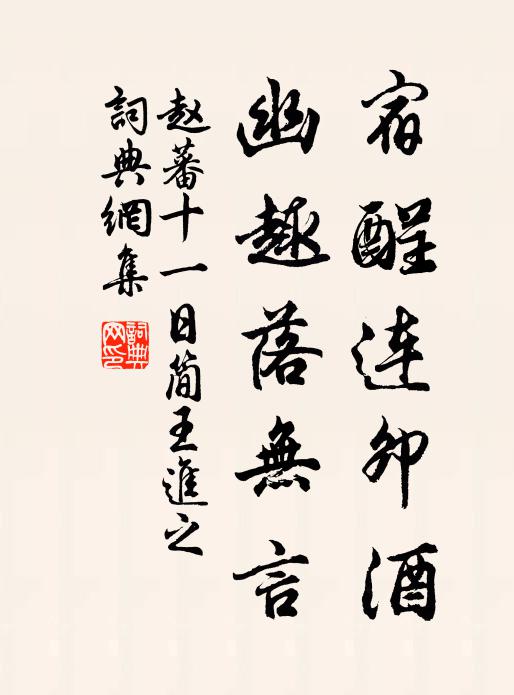 宿酲连卯酒
幽趣落無言
赵蕃十一日简王進之
詞典網集
詞典網印